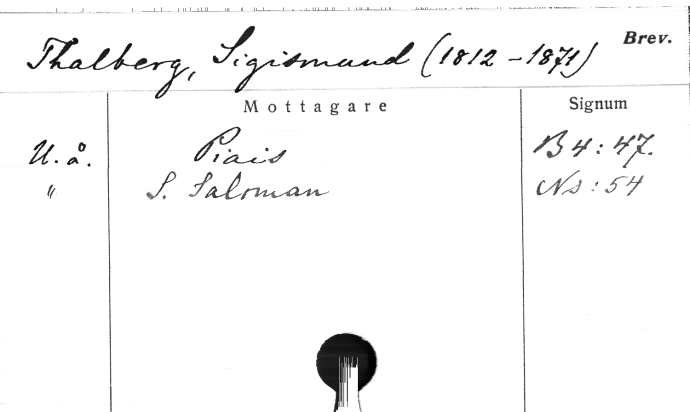 Brev.
Thalberg, Sigismund (1812-1871)
Mottagare Signum
U. å. Piais B 4: 47.
" S. Saloman Ns: 54